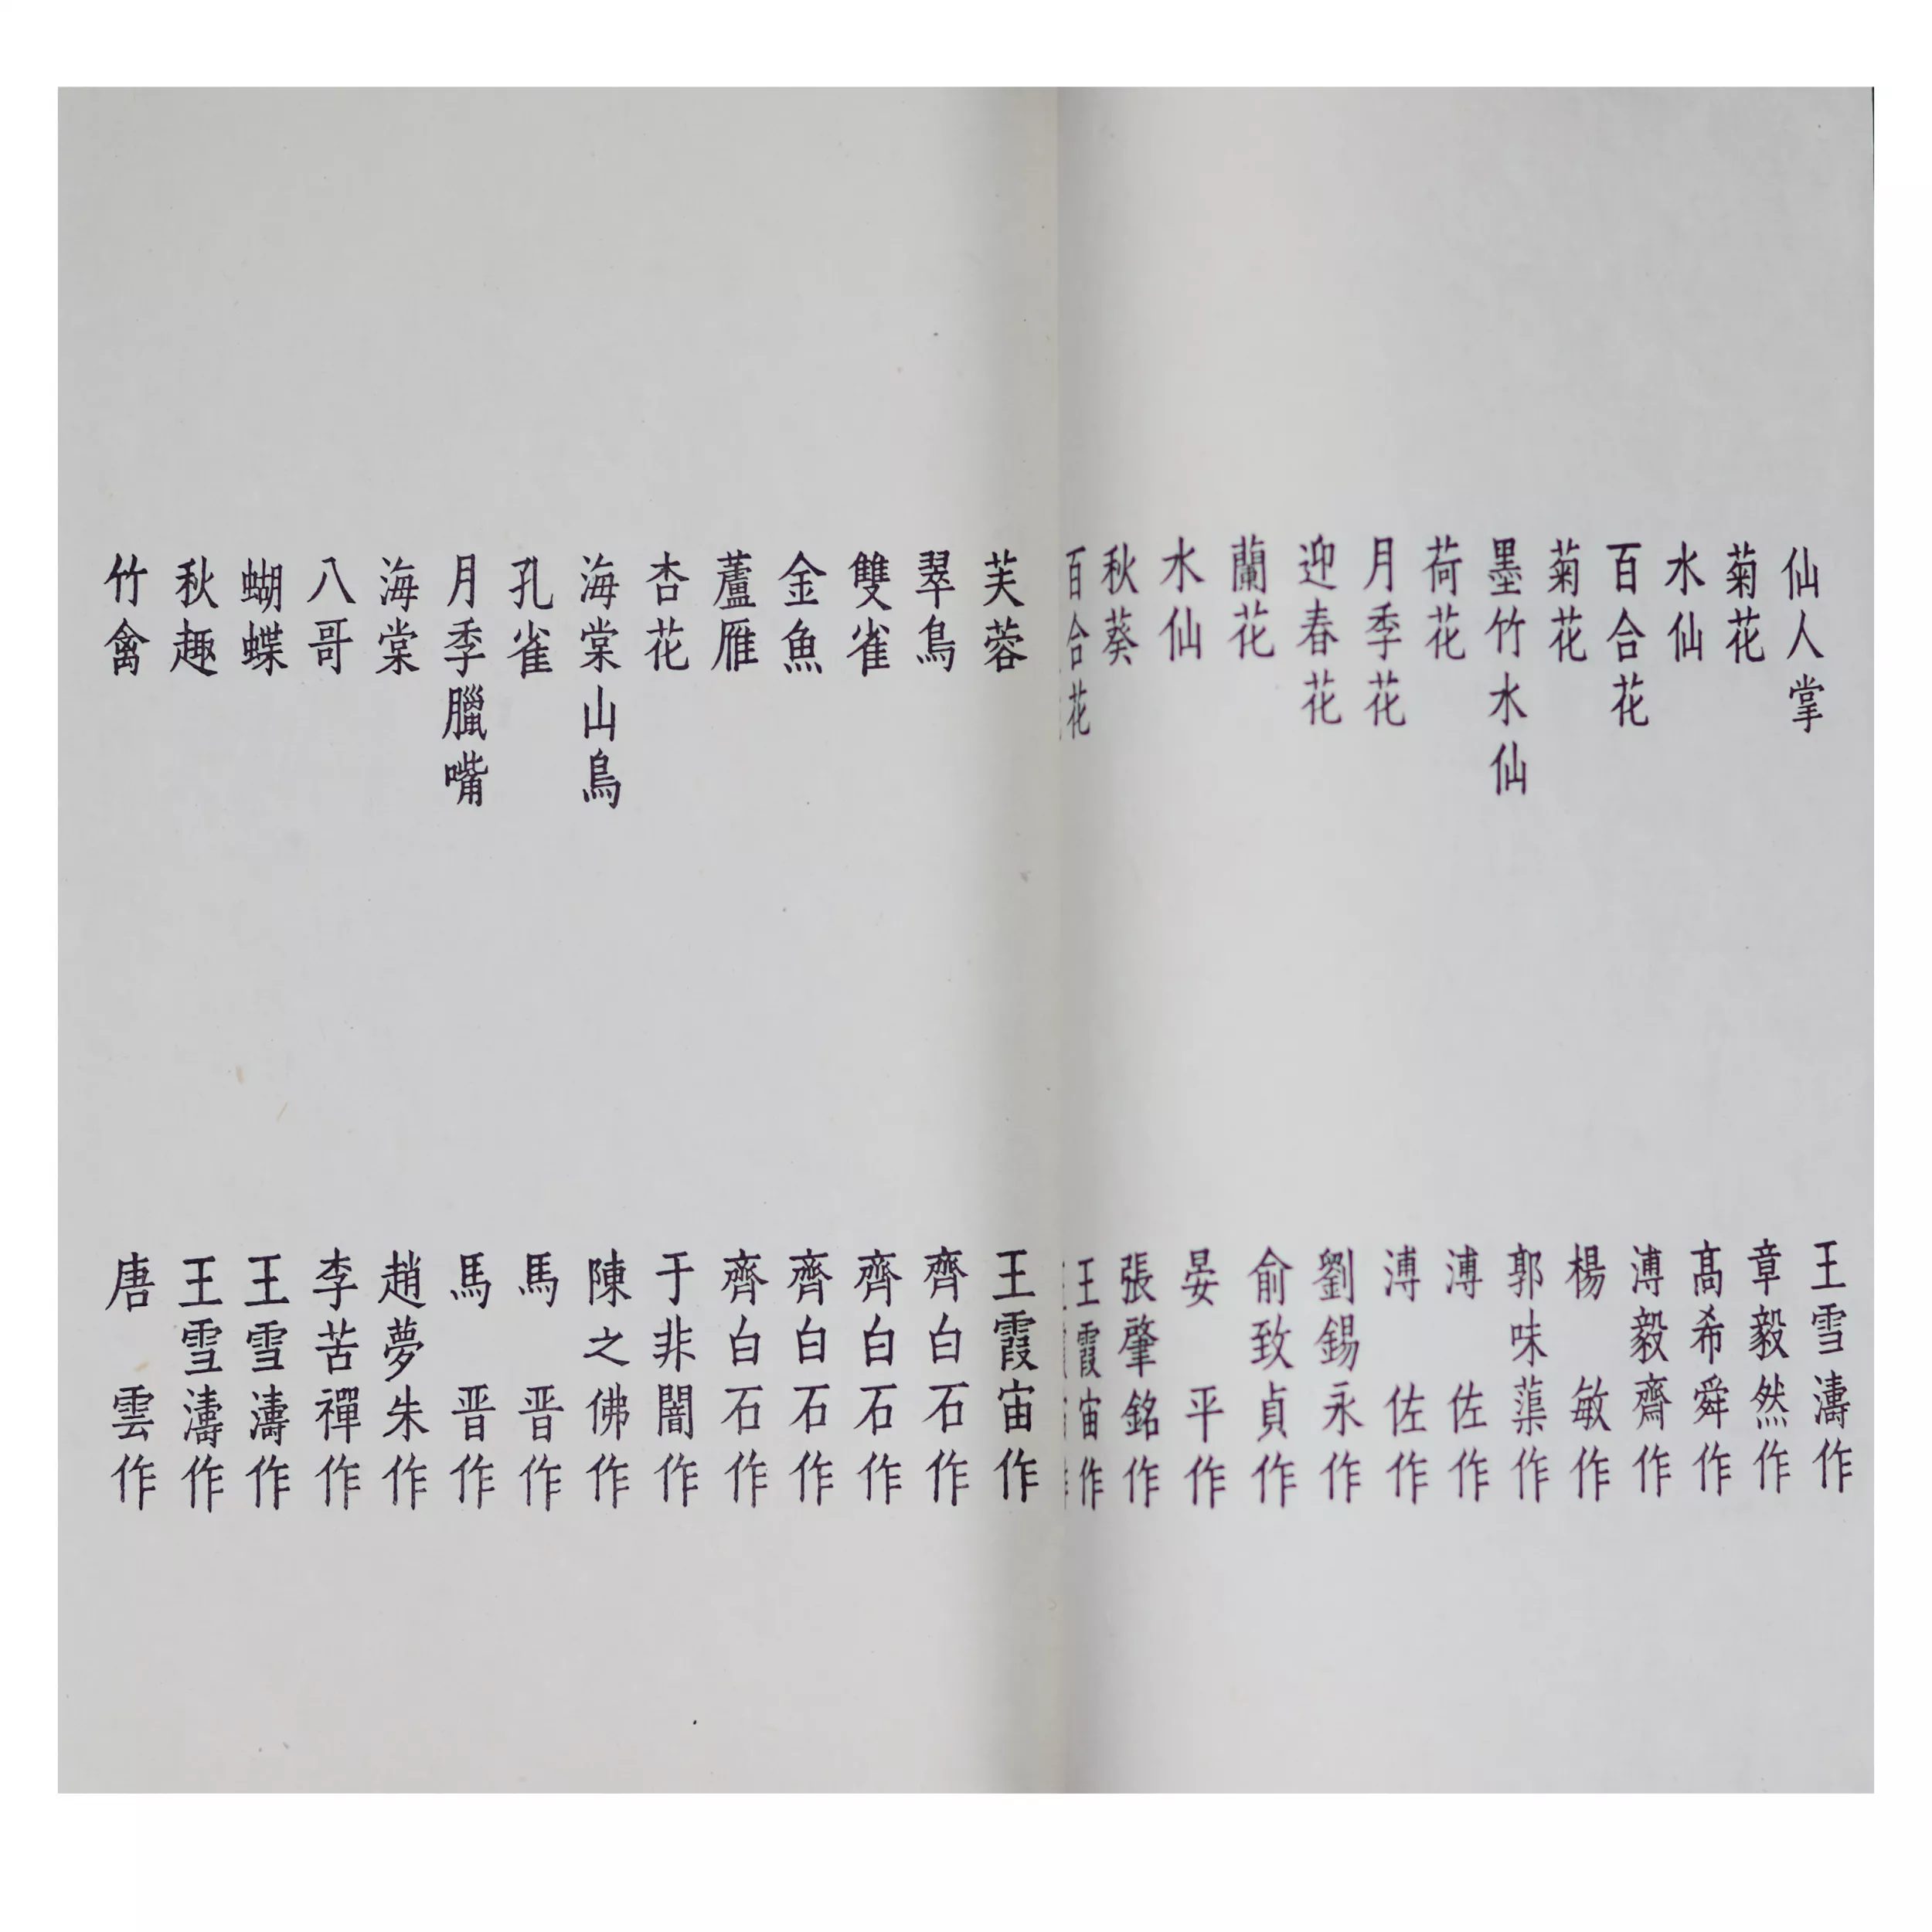 仙人掌 王雪濤作
菊花 章毅然作
水仙 高希舜作
百合花 溥毅齋作
菊花 楊敏作
墨竹水仙 郭味蕖作
荷花 溥佐作
月季花 溥佐作
迎春花 劉錫永作
蘭花 俞致貞作
水仙 晏平作
秋葵 張肇銘作
百合花 王霞宙作
芙蓉 王霞宙作
翠鳥 齊白石作
雙雀 齊白石作
金魚 齊白石作
蘆雁 齊白石作
杏花 于非闇作
海棠山鳥 陳之佛作
孔雀 馬晋作
月季臘嘴 馬晋作
海棠 趙夢朱作
八哥 李苦禪作
蝴蝶 王雪濤作
秋趣 王雪濤作
竹禽 唐雲作